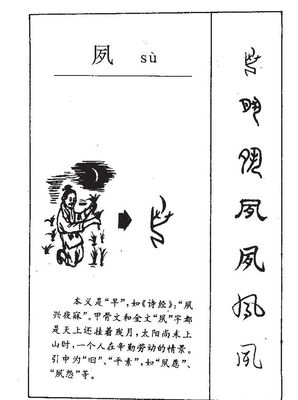 夙 sù
本义是“早”，如《诗经》：“夙
兴夜寐”。甲骨文和金文“夙”字都
是天上还挂着残月，太阳尚未上
山时，一个人在辛勤劳动的情景。
引申为“旧”、“平素”，如“夙愿”、
“夙怨”等。